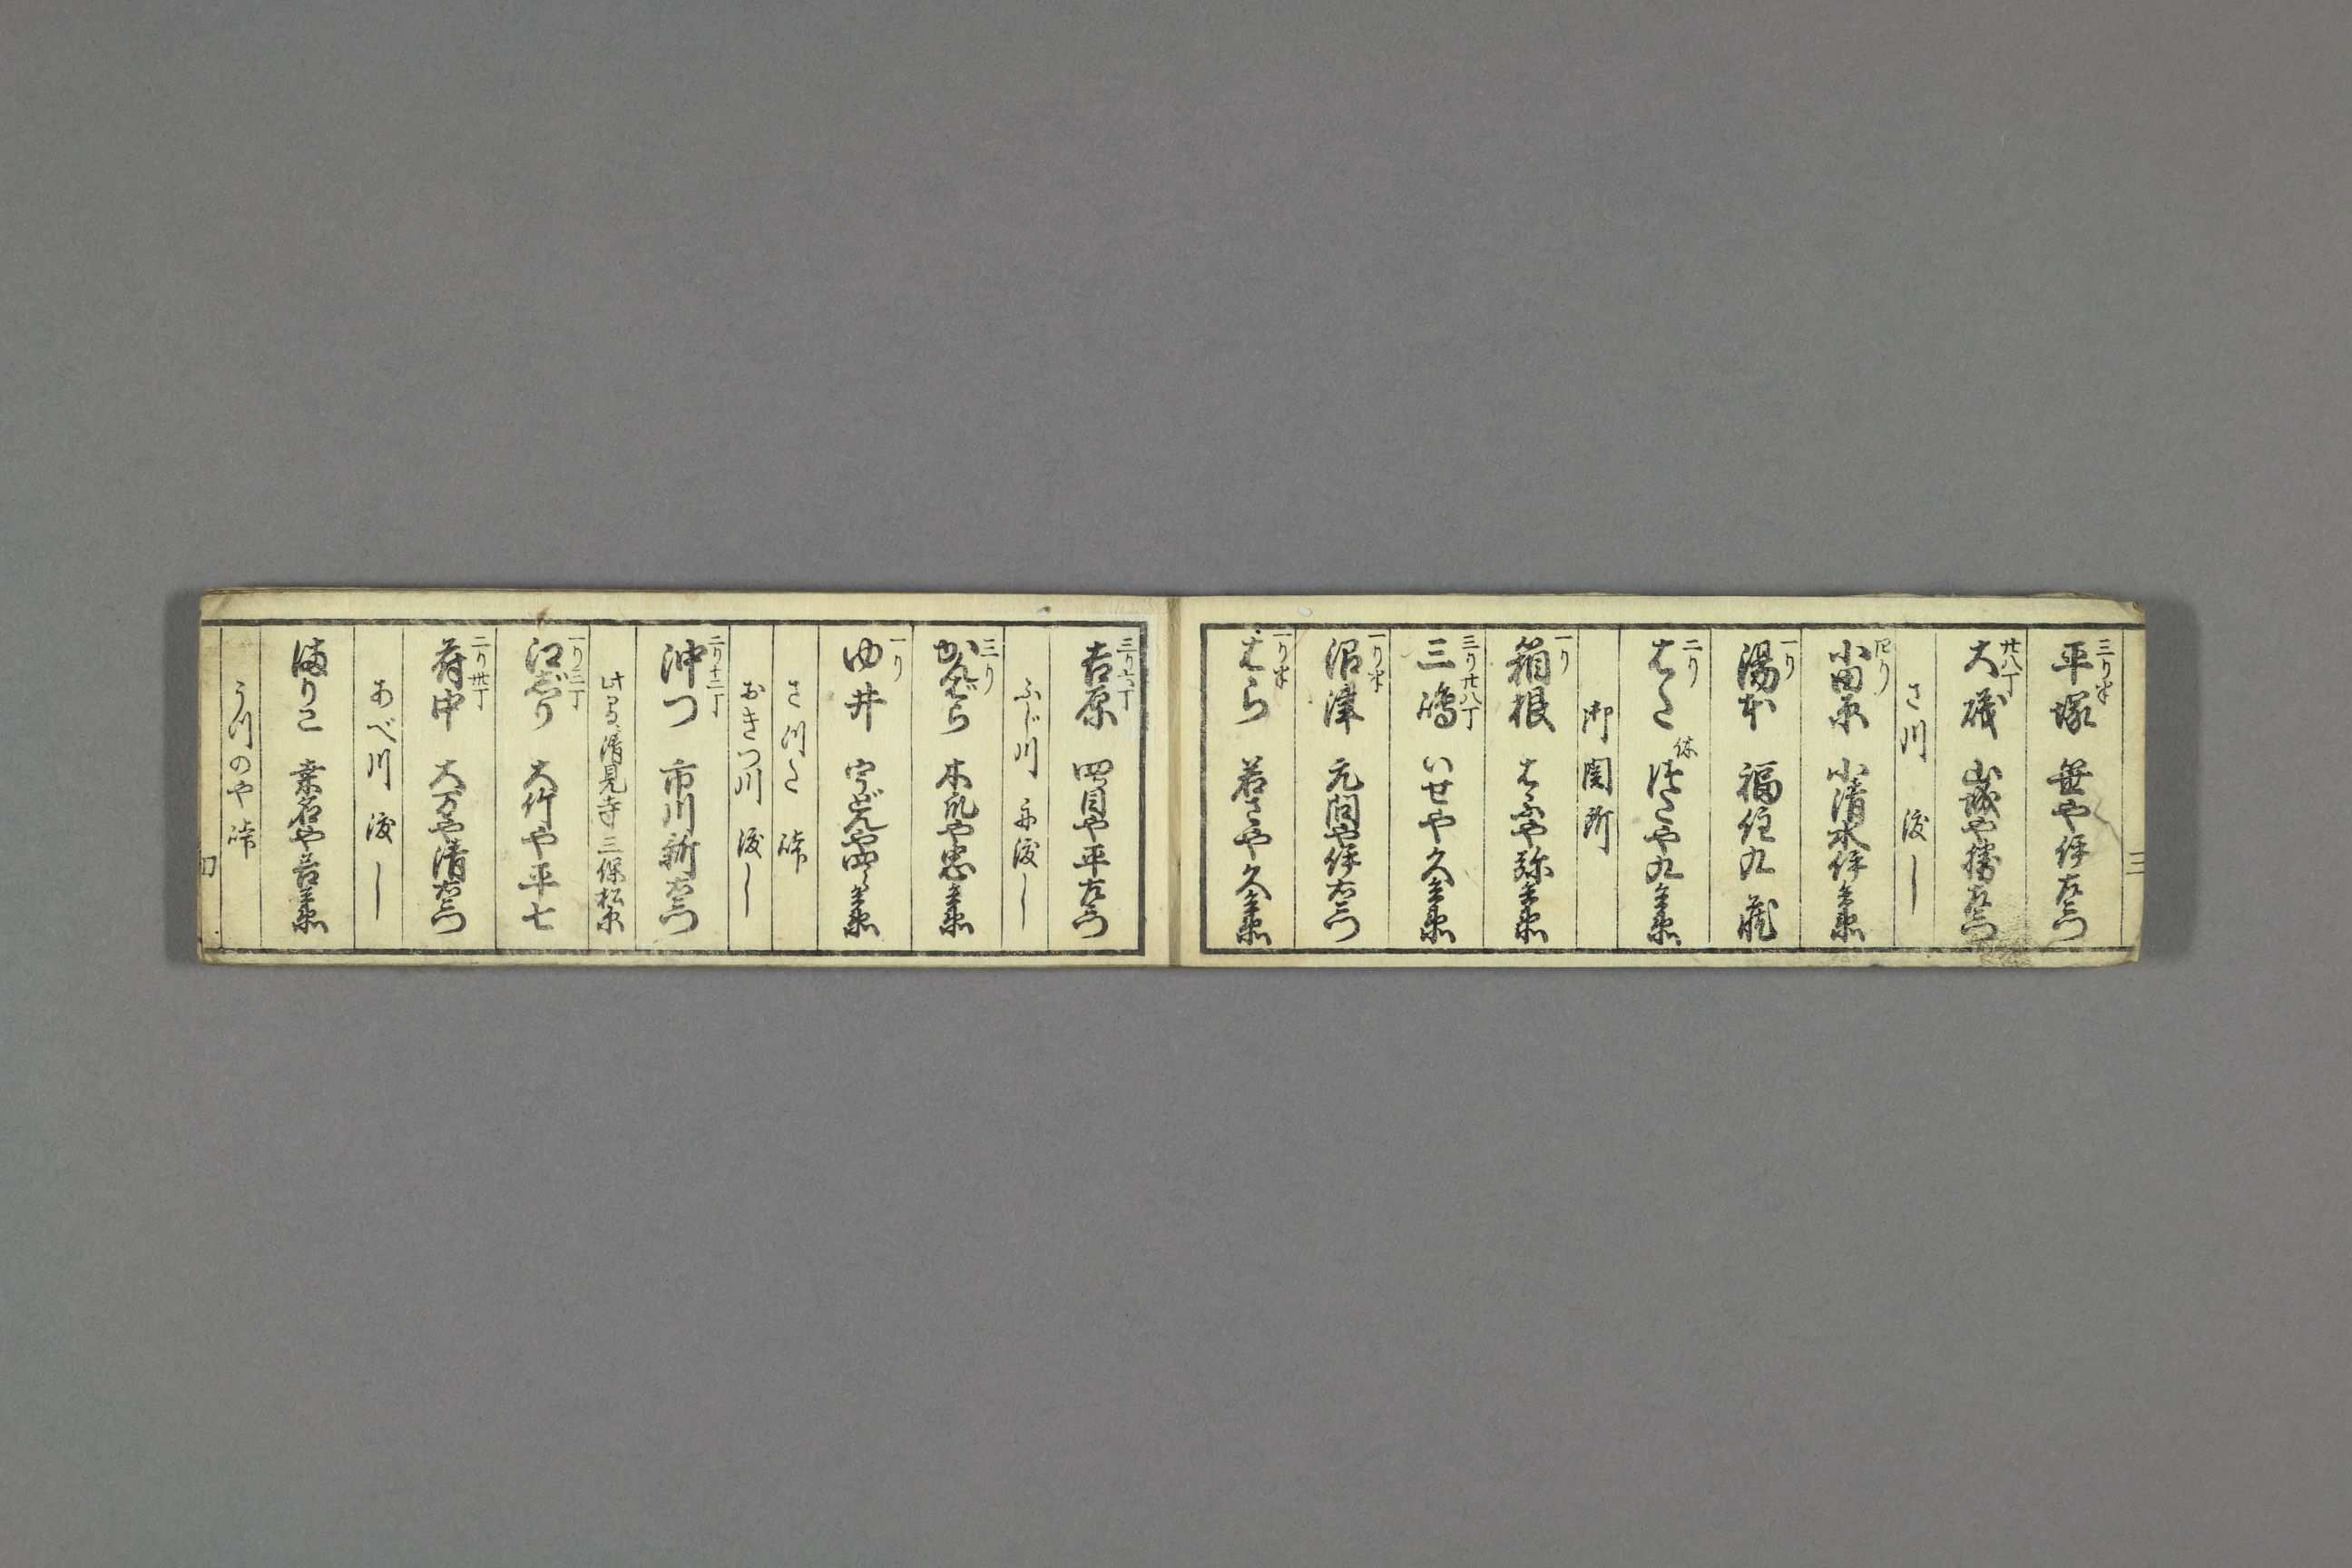 三
三リ半
平塚 笹や伊右衛門
廿八丁
大磯 山城や勝右衛門
さ川 渡し
四リ
小田原 小清水伊兵衛
一リ
湯本 福住九蔵
二リ
はた 休 つたや九兵衛
御関所
一リ
箱根 はふや弥兵衛
三リ廿八丁
三嶋 いせや久兵衛
一リ半
沼津 元問や伊右衛門
一リ半
はら 若さや久兵衛
三リ六丁
吉原 四目や平左衛門
ふじ川 舟渡し
三リ
かんばら 木瓜や忠兵衛
一リ
ゆ井 うどんや四郎兵衛
さつた 峠
おきつ川 渡し
二リ十二丁
沖つ 市川新左衛門
此間ニ清見寺三保松原
一リ三丁
江じり 大竹や平七
二リ廿丁
府中 大万や清右衛門
あべ川 渡し
まりこ 桑名や吉兵衛
うつのや 峠